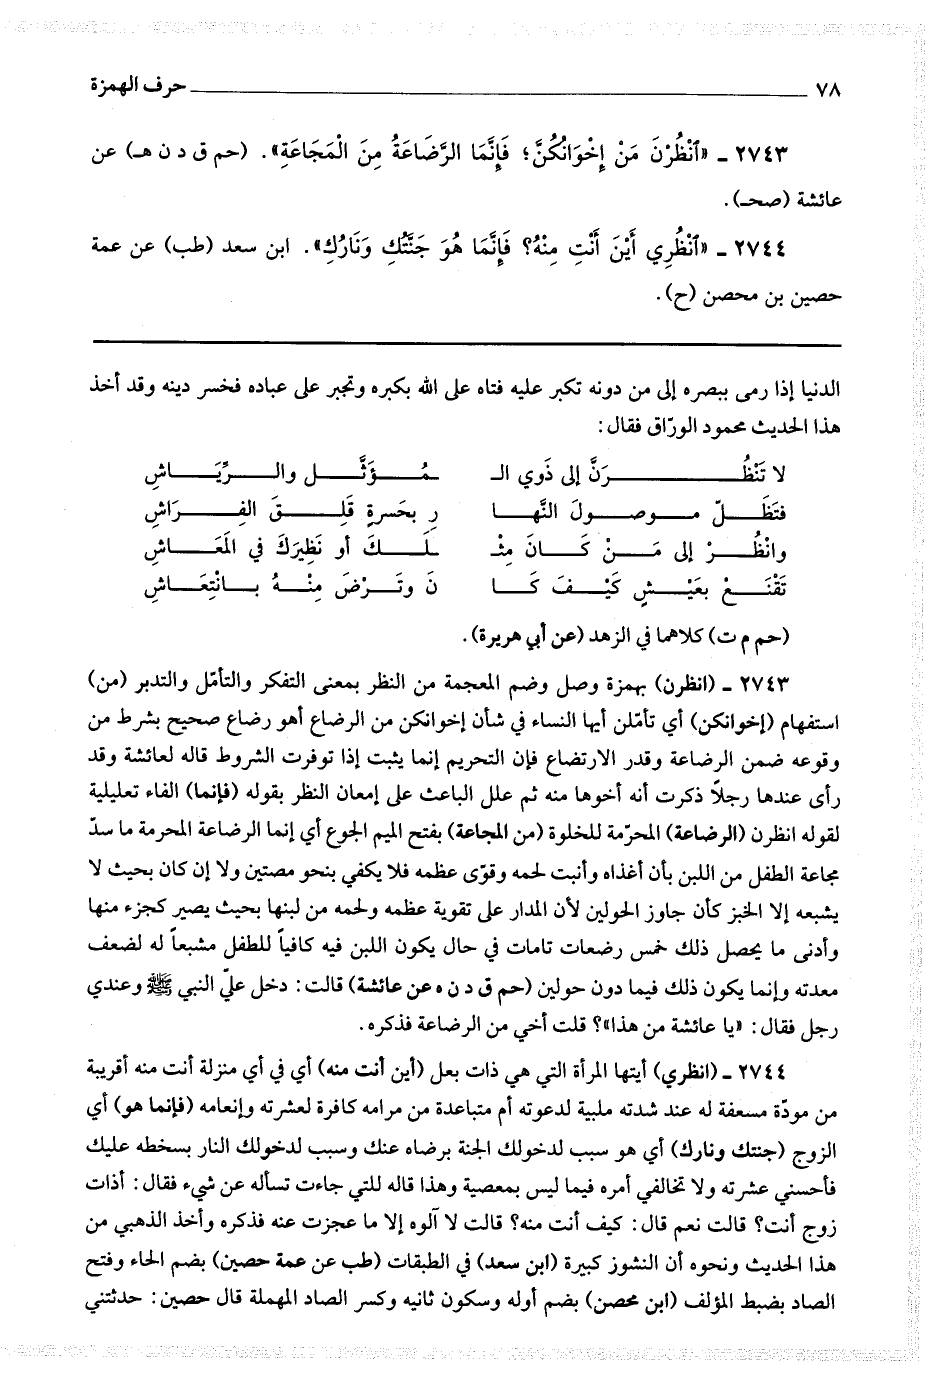 ٧٨ ــــــــــــــــــــــــــــــــ حرف الهمزة
٢٧٤٣ ـ «ٱنْظُرْنَ مَنْ إِخْوَانُكُنَّ؛ فَإِنَّمَا الرَّضَاعَةُ مِنَ الْمَجَاعَةِ». (حم ق د ن هـ) عن
عائشة (صحـ).
٢٧٤٤ ـ «ٱنْظُرِي أَيْنَ أَنْتِ مِنْهُ؟ فَإِنَّمَا هُوَ جَنَّتُكِ وَنَارُكِ». ابن سعد (طب) عن عمة
حصين بن محصن (ح).
الدنيا إذا رمى ببصره إلى من دونه تكبر عليه فتاه على الله بكبره وتجبر على عباده فخسر دينه وقد أخذ
هذا الحديث محمود الورّاق فقال:
لا تَنْظُــرَنَّ إلى ذَوي الـ مُــؤَثَّــلِ والــرِّيَــاشِ
فتَظَــلّ مــوصــولَ النَّهــا رِ بحَسرةٍ قَلِــقَ الفِــرَاشِ
وانْظُــرْ إلى مَــنْ كَــانَ مِثْـ ـلَــكَ أو نَظِيرَكَ في المَعَــاشِ
تَقْنَــعْ بعَيْــشٍ كَيْــفَ كَــا نَ وتَــرْضَ مِنْــهُ بــانْتِعَــاشِ
(حم م ت) كلاهما في الزهد (عن أبي هريرة).
٢٧٤٣ ـ (انظرن) بهمزة وصل وضم المعجمة من النظر بمعنى التفكر والتأمّل والتدبر (من)
استفهام (إخوانكن) أي تأمّلن أيها النساء في شأن إخوانكن من الرضاع أهو رضاع صحيح بشرط من
وقوعه ضمن الرضاعة وقدر الارتضاع فإن التحريم إنما يثبت إذا توفرت الشروط قاله لعائشة وقد
رأى عندها رجلاً ذكرت أنه أخوها منه ثم علل الباعث على إمعان النظر بقوله (فإنما) الفاء تعليلية
لقوله انظرن (الرضاعة) المحرّمة للخلوة (من المجاعة) بفتح الميم الجوع أي إنما الرضاعة المحرمة ما سدّ
مجاعة الطفل من اللبن بأن أغذاه وأنبت لحمه وقوّى عظمه فلا يكفي بنحو مصتين ولا إن كان بحيث لا
يشبعه إلا الخبز كأن جاوز الحولين لأن المدار على تقوية عظمه ولحمه من لبنها بحيث يصير كجزء منها
وأدنى ما يحصل ذلك خمس رضعات تامات في حال يكون اللبن فيه كافياً للطفل مشبعاً له لضعف
معدته وإنما يكون ذلك فيما دون حولين (حم ق د ن ه عن عائشة) قالت: دخل عليّ النبي ﷺ وعندي
رجل فقال: «يا عائشة من هذا»؟ قلت أخي من الرضاعة فذكره.
٢٧٤٤ ـ (انظري) أيتها المرأة التي هي ذات بعل (أين أنت منه) أي في أي منزلة أنت منه أقريبة
من مودّة مسعفة له عند شدته ملبية لدعوته أم متباعدة من مرامه كافرة لعشرته وإنعامه (فإنما هو) أي
الزوج (جنتك ونارك) أي هو سبب لدخولك الجنة برضاه عنك وسبب لدخولك النار بسخطه عليك
فأحسني عشرته ولا تخالفي أمره فيما ليس بمعصية وهذا قاله للتي جاءت تسأله عن شيء فقال: أذات
زوج أنت؟ قالت نعم قال: كيف أنت منه؟ قالت لا آلوه إلا ما عجزت عنه فذكره وأخذ الذهبي من
هذا الحديث ونحوه أن النشوز كبيرة (ابن سعد) في الطبقات (طب عن عمة حصين) بضم الحاء وفتح
الصاد بضبط المؤلف (ابن محصن) بضم أوله وسكون ثانيه وكسر الصاد المهملة قال حصين: حدثتني